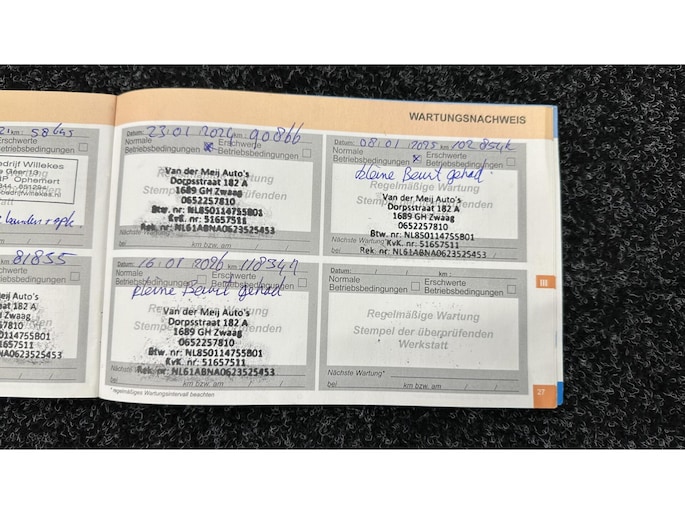 21 km: 58645
drijf Willekes
P Ophemert
81855
eij Auto's
aat 182 A
Zwaag
57810
14755B01
1657511
NA0623525453
WARTUNGSNACHWEIS
Datum: 23.01.2024 km: 90866
Normale Erschwerte
Betriebsbedingungen x Betriebsbedingungen
Regelmäßige Wartung
Van der Meij Auto's
Dorpsstraat 182 A
1689 GH Zwaag
0652257810
Btw. nr: NL850114755B01
KvK. nr: 51657511
Rek. nr: NL61ABNA0623525453
Datum: 08.01.2025 km: 102854k
Normale Erschwerte
Betriebsbedingungen x Betriebsbedingungen
kleine Beurt gehad.
Regelmäßige Wartung
Van der Meij Auto's
Dorpsstraat 182 A
1689 GH Zwaag
0652257810
Btw. nr: NL850114755B01
KvK. nr: 51657511
Nächste Wartung
Rek. nr: NL61ABNA0623525453
Datum: 16.01.2026 km: 118347
Normale Erschwerte
Betriebsbedingungen Betriebsbedingungen
kleine Beurt gehad
Van der Meij Auto's
Dorpsstraat 182 A
1689 GH Zwaag
0652257810
Btw. nr: NL850114755B01
KvK. nr: 51657511
Nächste Wartung
Rek. nr: NL61ABNA0623525453
bei km bzw. am / /
Datum: / / km:
Normale Erschwerte
Betriebsbedingungen Betriebsbedingungen
Regelmäßige Wartung
Stempel der überprüfenden
Werkstatt
Nächste Wartung* / /
bei km bzw. am / /
*regelmäßiges Wartungsintervall beachten
III
27